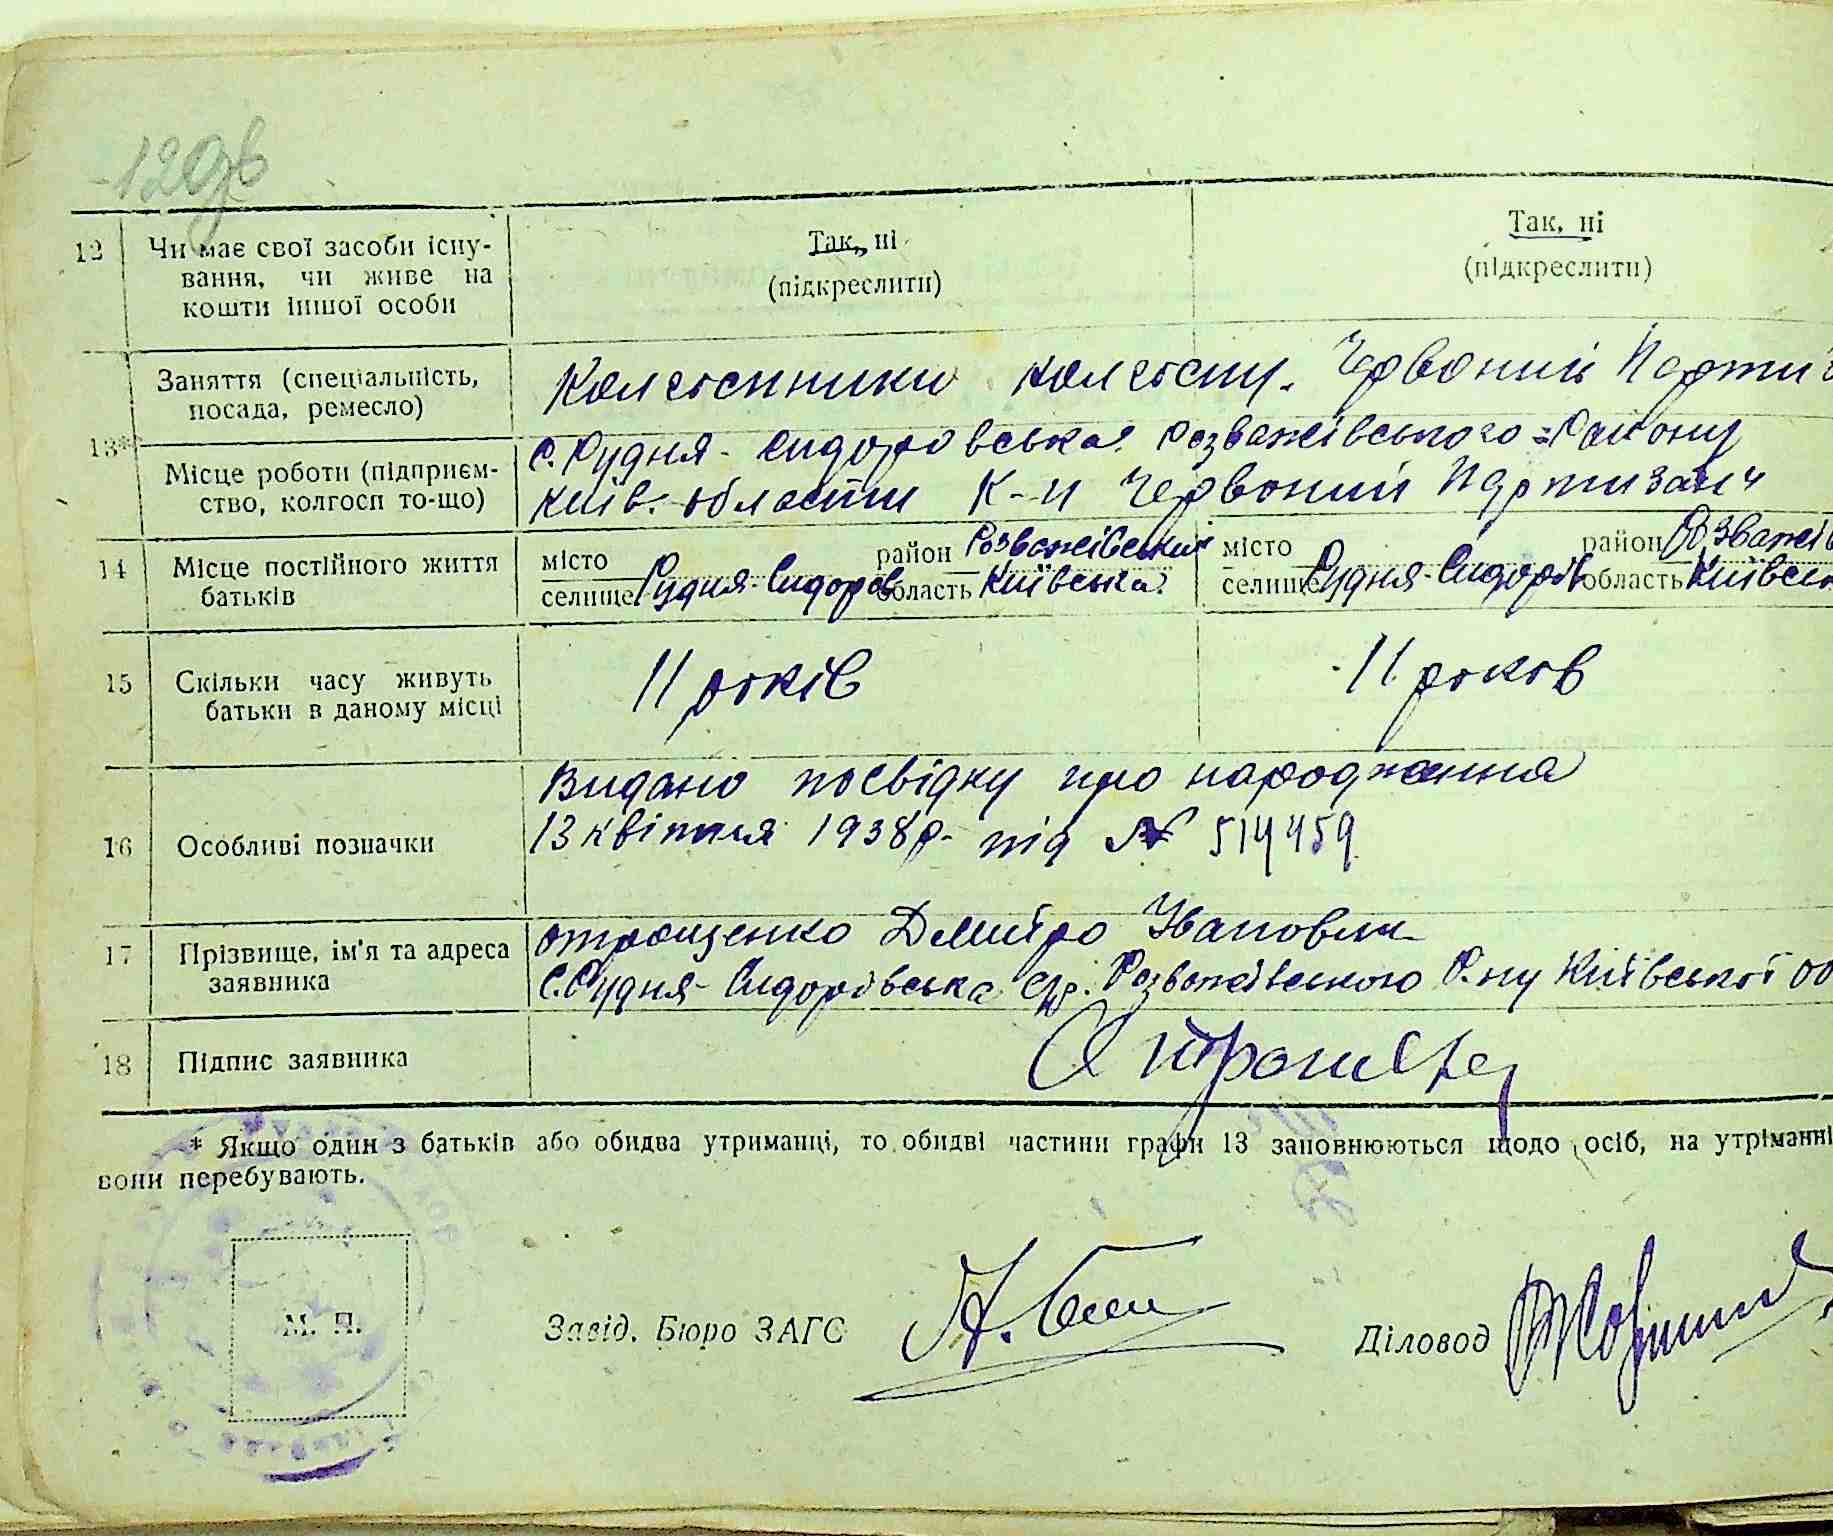 12
Чи має свої засоби існу-
вання, чи живе на
кошти іншої особи
Так, ні
(підкреслити)
Так, ні
(підкреслити)
13*
Заняття (спеціальність,
посада, ремесло)
Колгоспники колгоспу. Червоний Парти
Місце роботи (підприєм-
ство, колгосп то-що)
с. Рудня-Сидоровська Розважівського Району
Київ. области К-п Червоний Партизан
14
Місце постійного життя
батьків
місто
селище Рудня-Сидоров
район Розважівський
область Київська
місто
селище Рудня-Сидорів
район Розважів
область Київськ
15
Скільки часу живуть
батьки в даному місці
11 років
11 роков
16
Особливі позначки
Видано посвідку про народження
13 квітня 1938 р. під № 514459
17
Прізвище, ім'я та адреса
заявника
Отрощенко Дмитро Іванович
С. Рудня-Сидоровська с/р. Розважівського Р-ну Київської об
18
Підпис заявника
* Якщо один з батьків або обидва утриманці, то обидві частини графи 13 заповнюються щодо осіб, на утриманні
вони перебувають.
М. П.
Завід. Бюро ЗАГС
Діловод